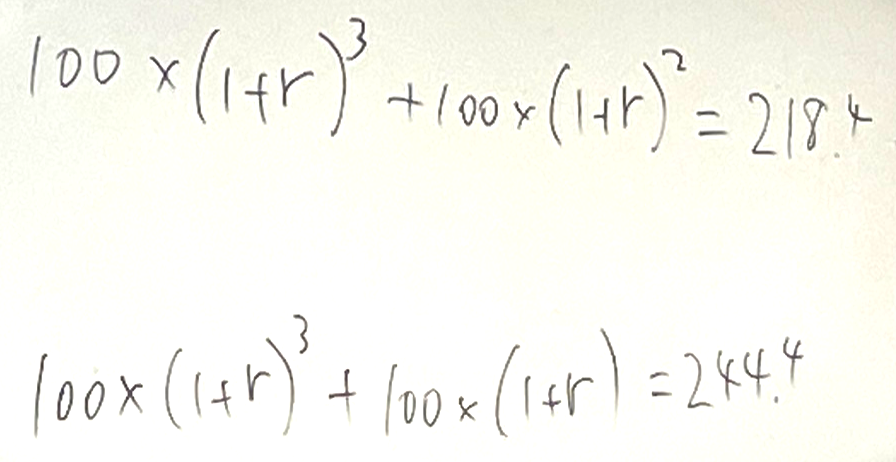 100×(1+r)³+100×(1+r)²=218.4
100×(1+r)³+100×(1+r)=244.4